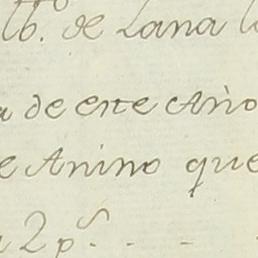 lb.º de Lana l
a de este Año
e Anino que
a 2 p.s - -